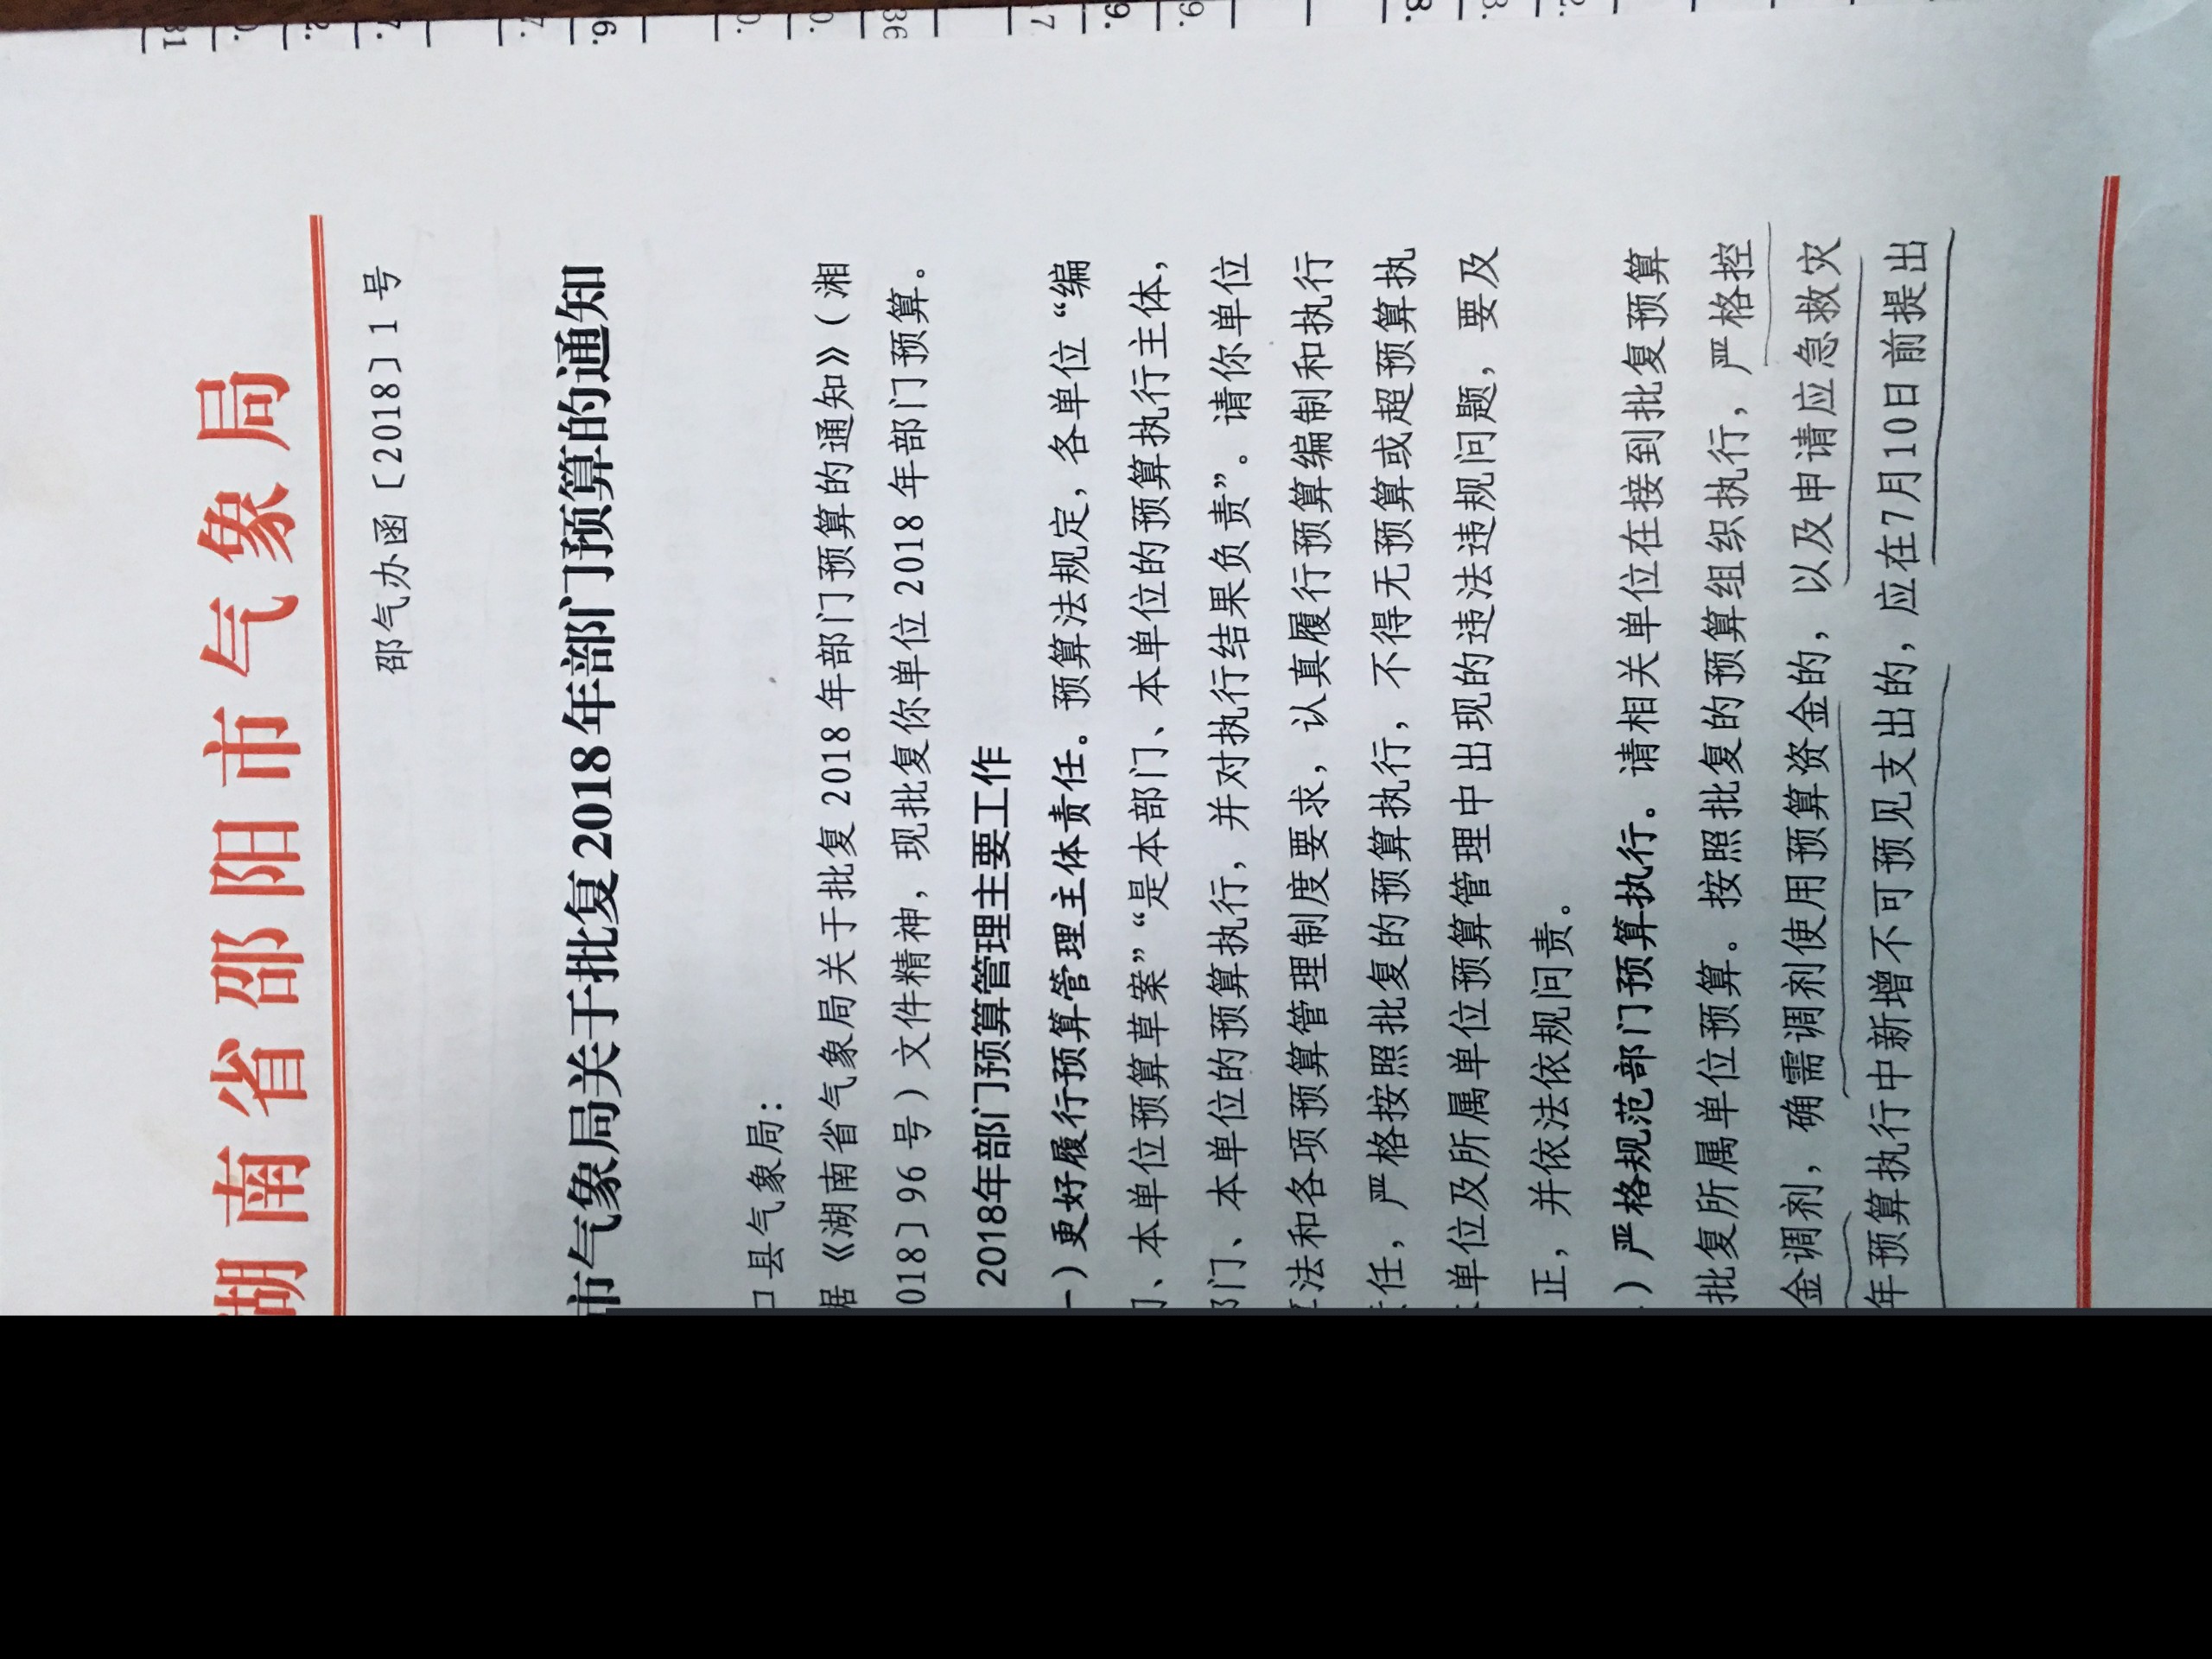 湖南省邵阳市气象局
邵气办函〔2018〕1号
市气象局关于批复2018年部门预算的通知
口县气象局：
据《湖南省气象局关于批复2018年部门预算的通知》（湘
018〕96号）文件精神，现批复你单位2018年部门预算。
2018年部门预算管理主要工作
一）更好履行预算管理主体责任。预算法规定，各单位“编
、本单位预算草案”“是本部门、本单位的预算执行主体，
部门、本单位的预算执行，并对执行结果负责”。请你单位
法和各项预算管理制度要求，认真履行预算编制和执行
任，严格按照批复的预算执行，不得无预算或超预算执
单位及所属单位预算管理中出现的违法违规问题，要及
正，并依法依规问责。
）严格规范部门预算执行。请相关单位在接到批复预算
批复所属单位预算。按照批复的预算组织执行，严格控
金调剂，确需调剂使用预算资金的，以及申请应急救灾
年预算执行中新增不可预见支出的，应在7月10日前提出